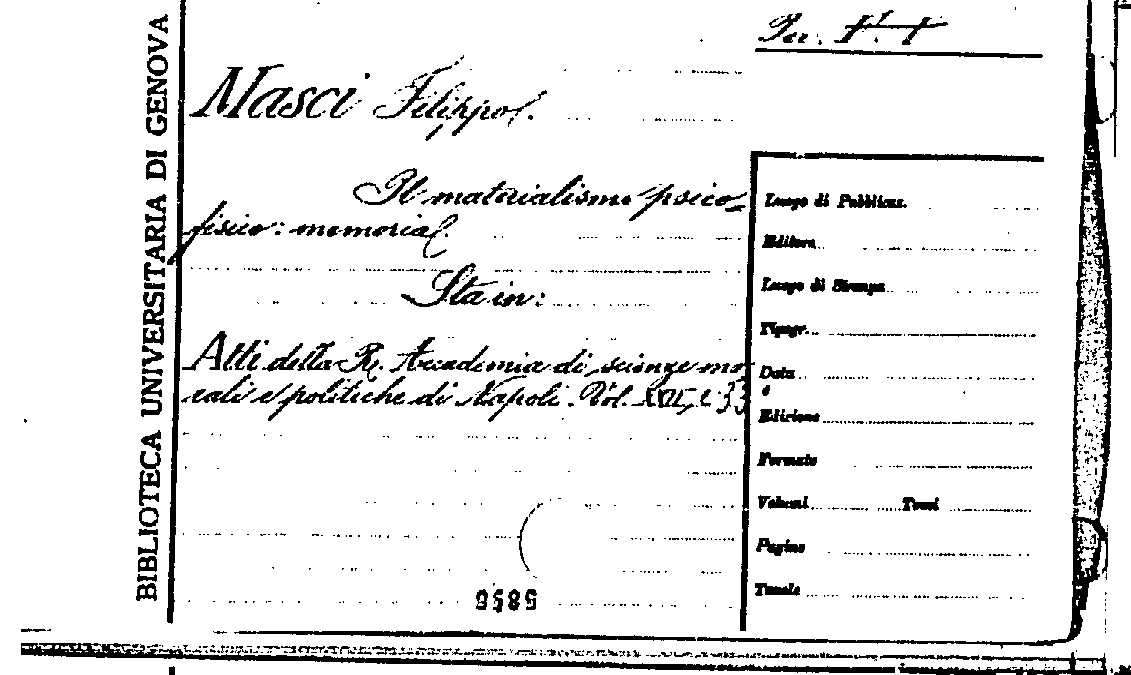 BIBLIOTECA UNIVERSITARIA DI GENOVA
Per.
Masci Filippo.
Il materialismo psico-
fisico: memoria.
Sta in:
Atti della R. Accademia di scienze mo
rali e politiche di Napoli. Vol.
Luogo di Pubblicaz.
Editore
Luogo di Stampa
Tipogr.
Data
e
Edizione
Formato
Volumi Tomi
Pagine
Tavole